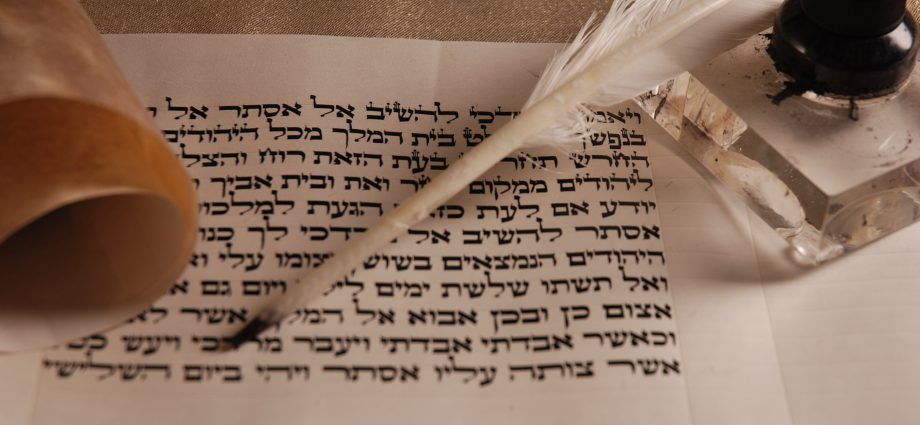 ויאמר מרדכי להשיב אל אסתר אל
בנפשך בית המלך מכל היהודים
החרש בעת הזאת רוח והצלה
ליהודים ממקום ואת ובית אביך
יודע אם לעת כזאת הגעת למלכות
אסתר להשיב אל מרדכי לך כנוס
היהודים הנמצאים בשושן וצומו עלי ואל
ואל תשתו שלשת ימים לילה ויום גם
אצום כן ובכן אבוא אל המלך אשר לא
וכאשר אבדתי אבדתי ויעבר מרדכי ויעש
אשר צותה עליו אסתר ויהי ביום השלישי